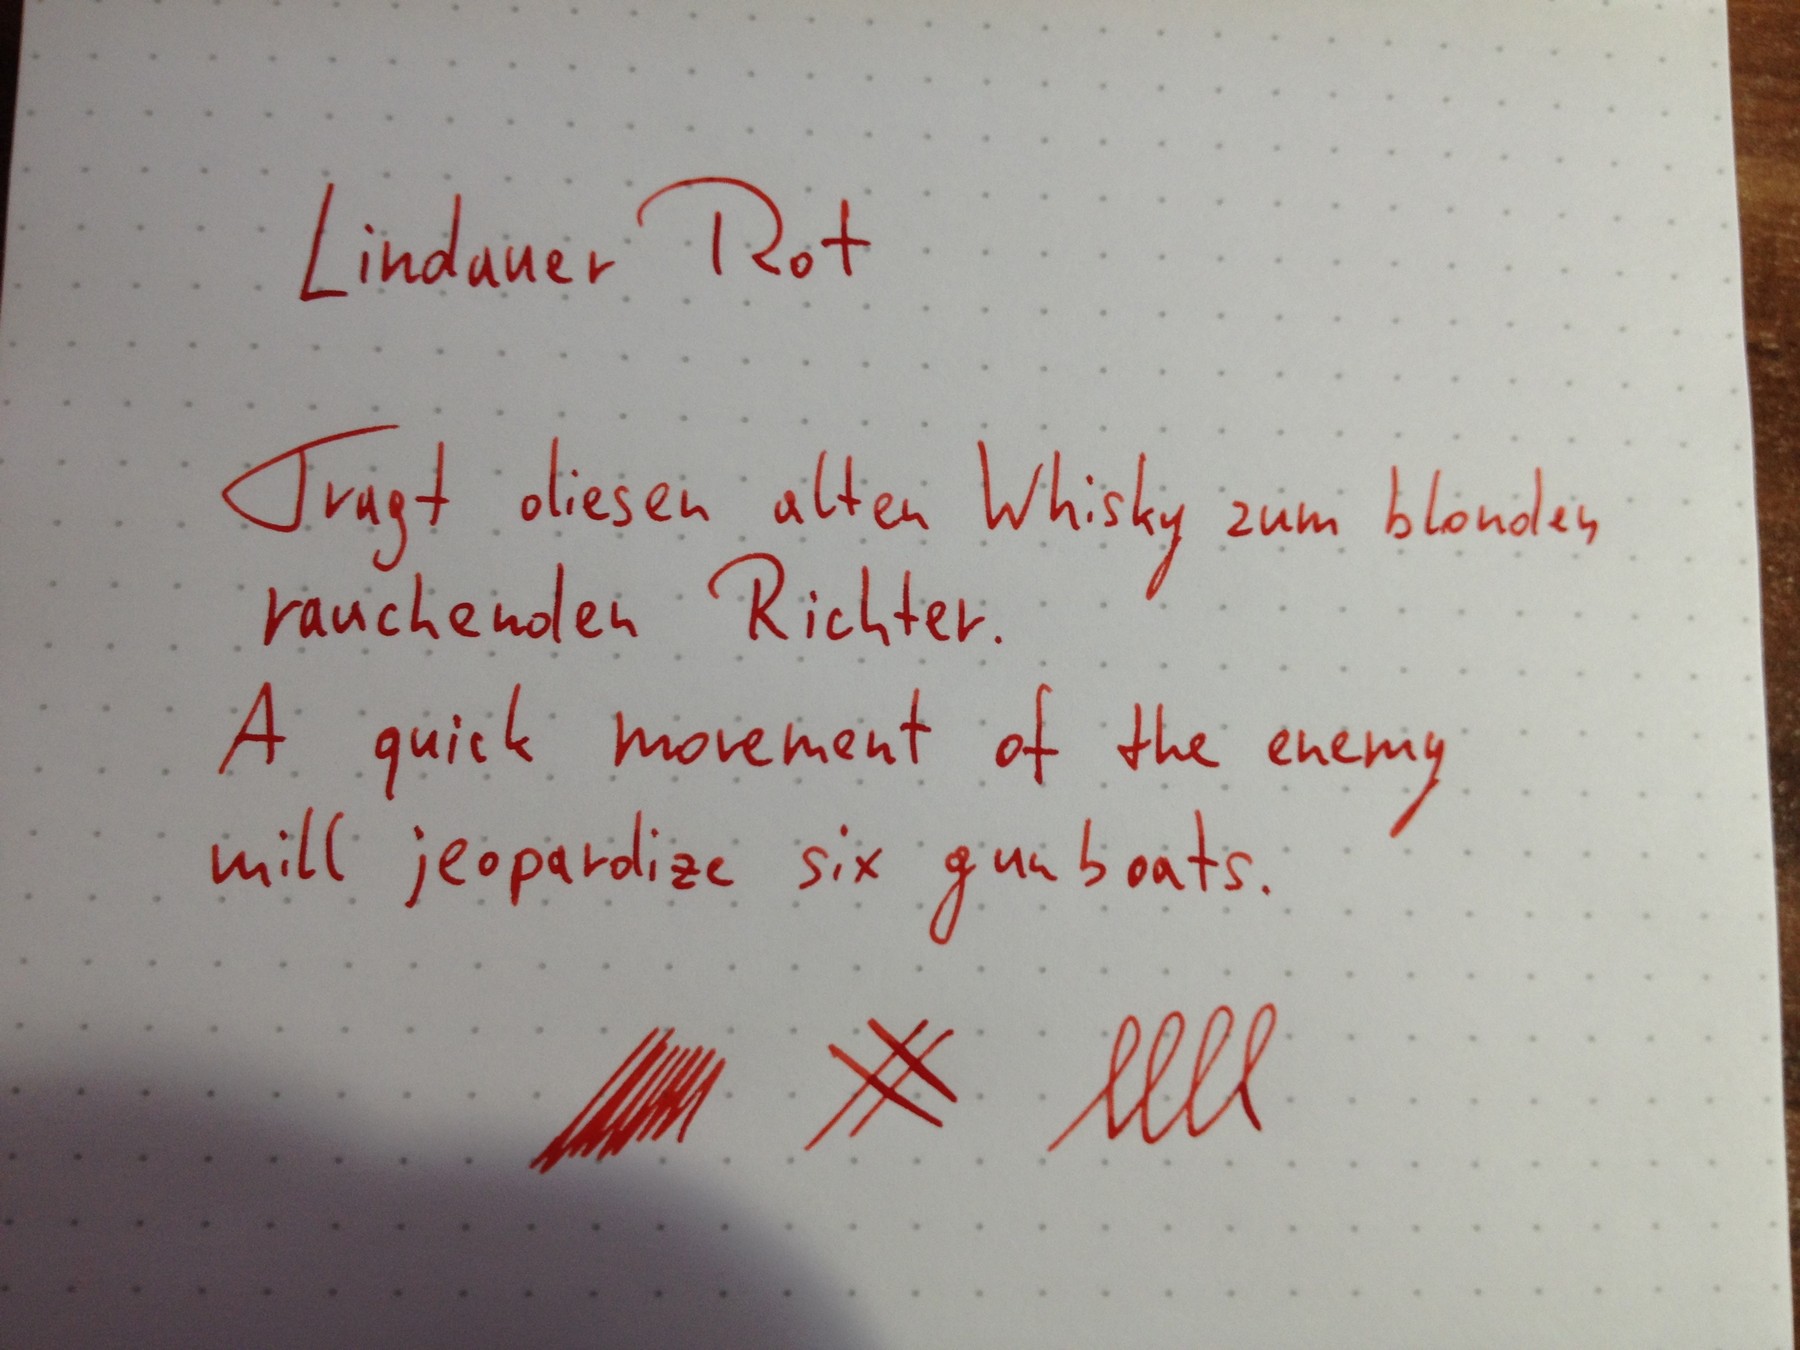 Lindauer Rot
Tragt diesen alten Whisky zum blonden
rauchenden Richter.
A quick movement of the enemy
will jeopardize six gunboats.